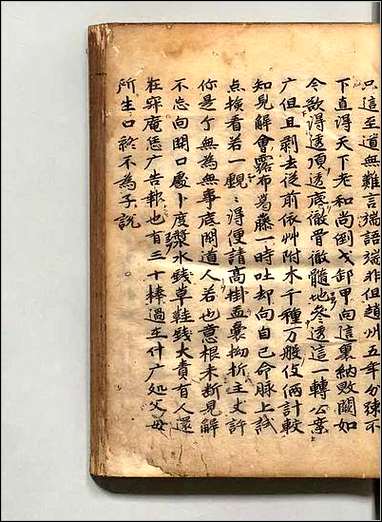 只這至道無難言端語端非但趙州五年分疎不
下直得天下老和尚倒戈卸甲向這裏納敗闕如
今欲得透頂透底徹骨徹髓地参透這一轉公案
广但且剥去従前依艸附木千種万般伎倆計較
知見解會露布葛藤一時吐却向自己命脉上試
点撿看若一覷〻得便請高掛盂囊拗折主丈許
你是个無為無事底閑道人若也意根未断見解
不忘向開口處卜度漿水銭草鞋銭大責有人還
在穽庵恁广告報也有三十棒過在什广処父母
所生口終不為子説